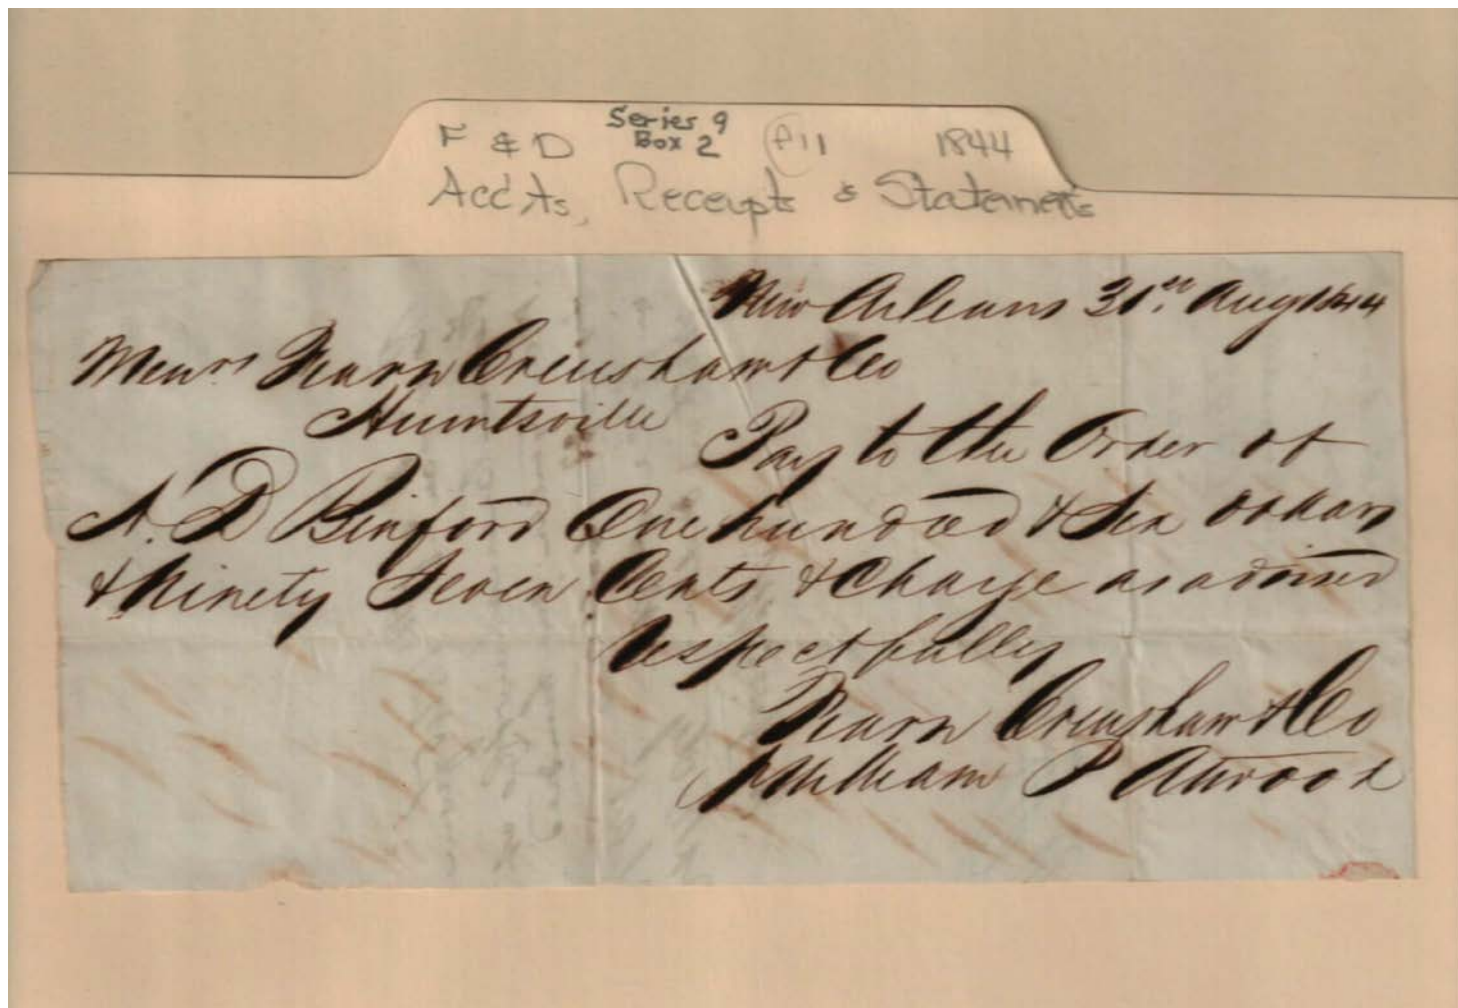 F & D Series 9 Box 2 F11 1844
Acc'ts, Receipts & Statements
New Orleans 31st. Aug 1844
Messrs Fearn Crenshaw & Co
Huntsville
Pay to the Order of
A. D Binford One hundred & Six dollars
& Ninety Seven Cents & Charge as advised
Respectfully
Fearn Crenshaw & Co
William P Atwood